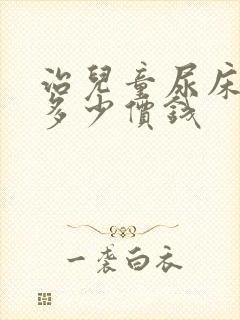 治兒童尿床
多少價錢
一袭白衣